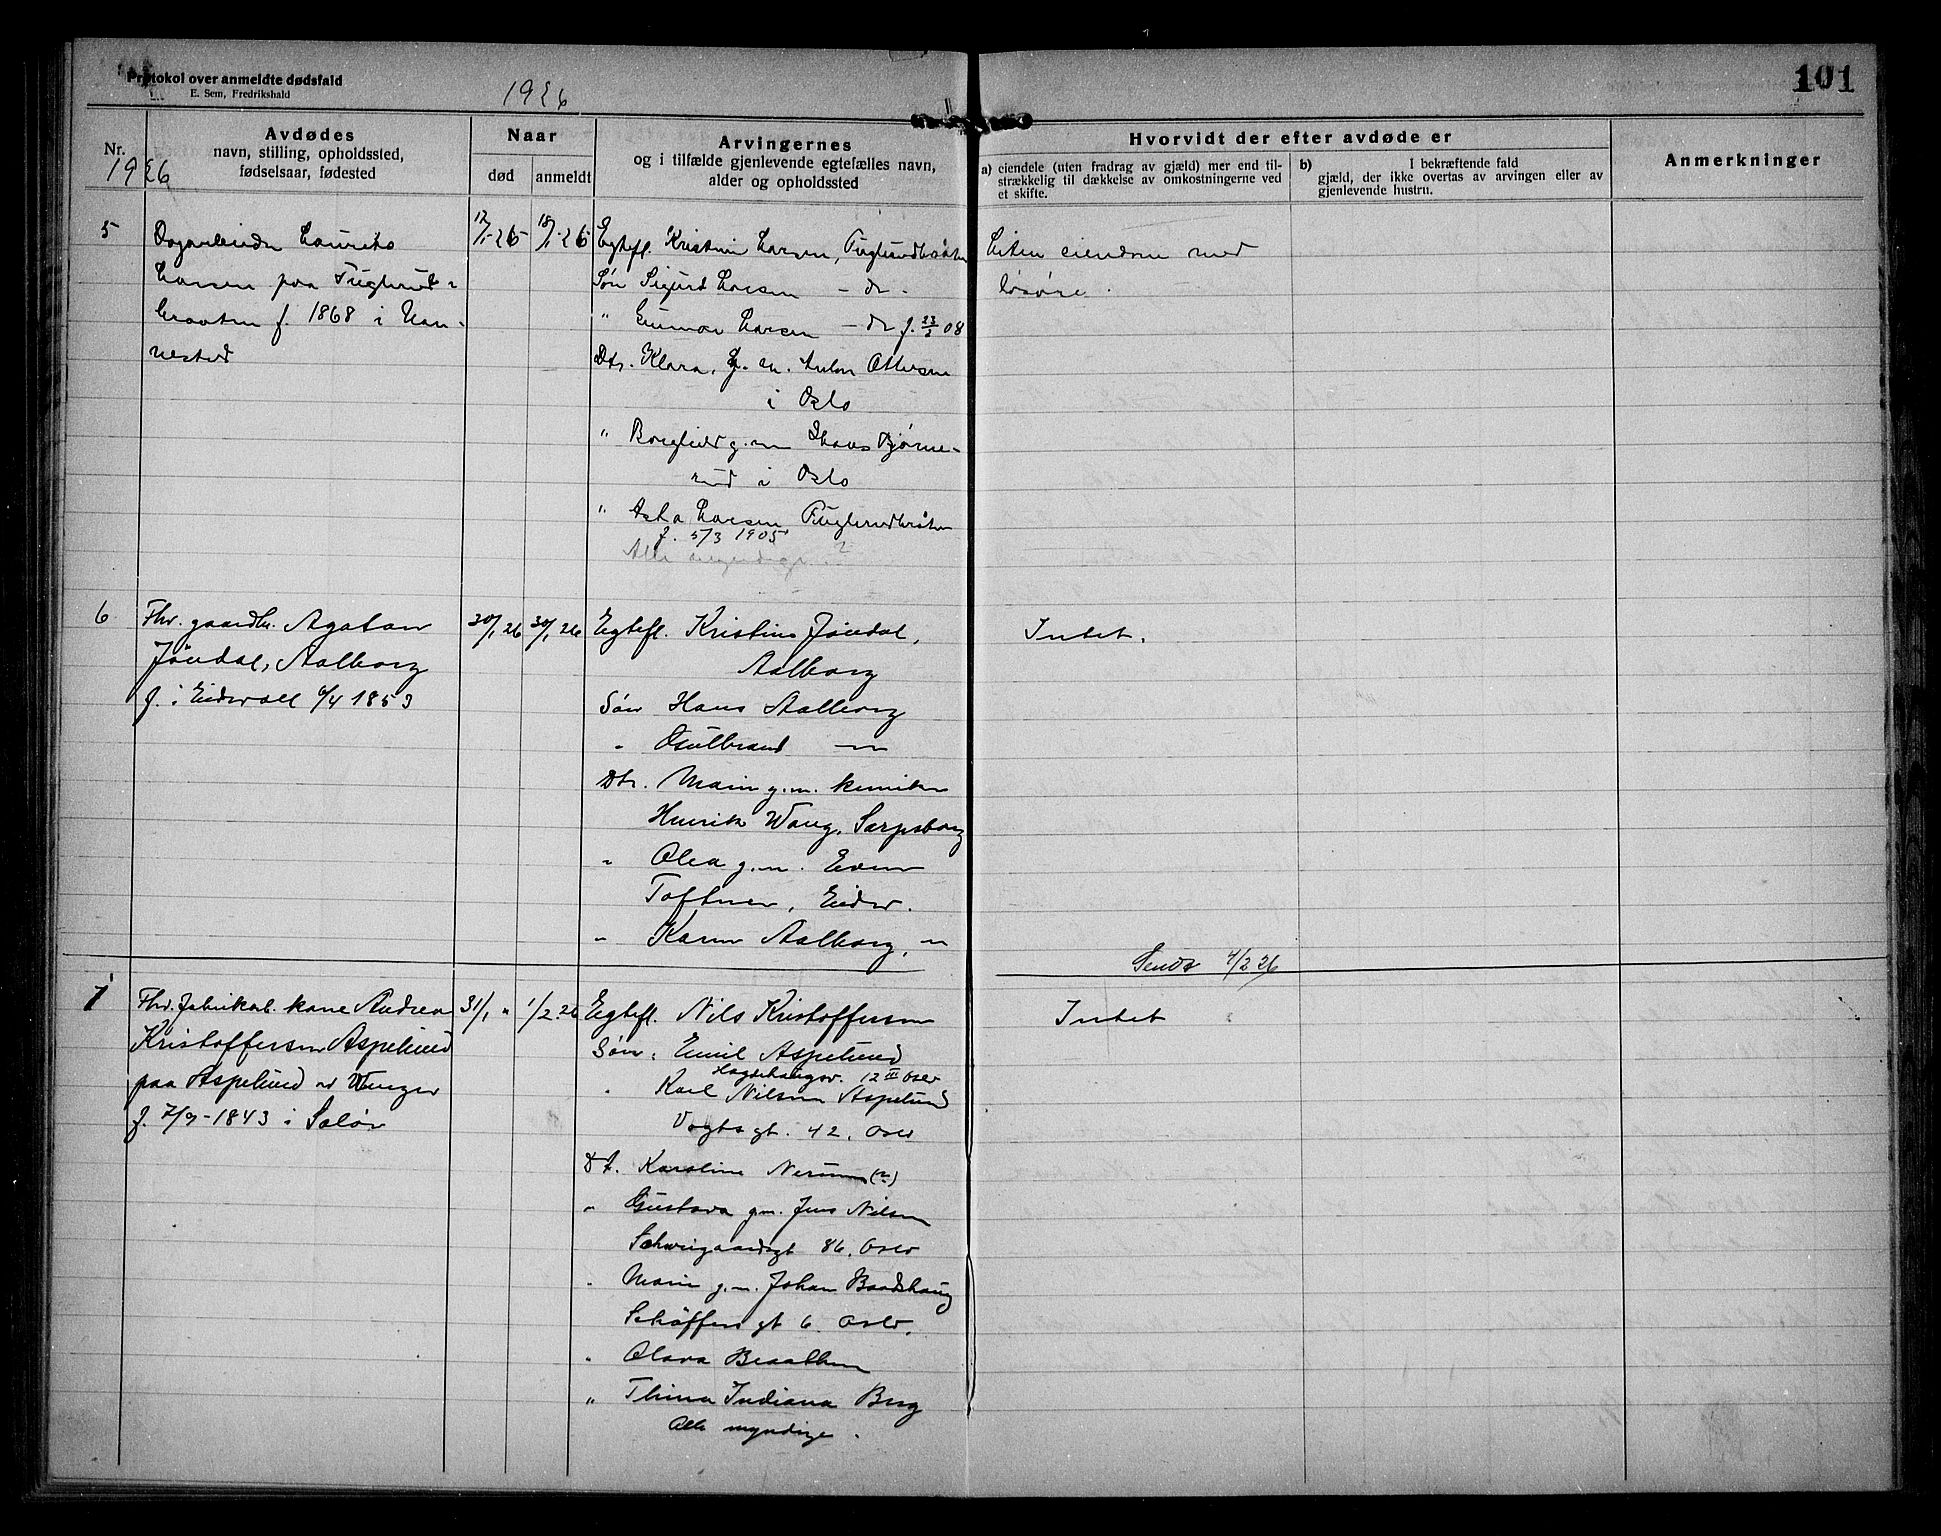 Protokol over anmeldte dødsfald
E. Sem, Fredrikshald
1926
101
Nr.
1926
Avdødes
navn, stilling, opholdssted,
fødselsaar, fødested
Naar
død
anmeldt
Arvingernes
og i tilfælde gjenlevende egtefælles navn,
alder og opholdssted
Hvorvidt der efter avdøde er
a) eiendele (uten fradrag av gjæld) mer end til-
strækkelig til dækkelse av omkostningerne ved
et skifte.
b) I bekræftende fald
gjæld, der ikke overtas av arvingen eller av
gjenlevende hustru.
Anmerkninger
5
Dagarbeider Laurits
Larsen paa Fuglerud-
braaten f. 1868 i Nan-
nestad
12/1-26
18/1-26
Egtefl. Kristine Larsen, Fuglerudbråten
Søn Sigurd Larsen - do -
" Gunnar Larsen - do f. 08
Dtr. Klara, g. m. Anton Ottersen
i Oslo
" Borghild g. m Bjørne-
rud i Oslo
" Asta Larsen Fuglerudbråten
f. 5/3 1905
Alle myndige ?
Liten eiendom med
løsøre.
6
Fhv. gaardbr. Agaton
Jøndal, Aalborg
f. i Eidsvoll /4 1853
30/1 26
30/1 26
Egtefl. Kristine Jøndal,
Aalborg
Søn Hans Aalborg
" Gulbrand —"—
Dtr. Marie g. m. kemiker
Henrik Wang, Sarpsborg
" Olea g. m. Even
Toftner, Eidsv.
" Karen Aalborg, —"—
Intet.
Sendt 4/2 26
7
Fhv. fabrikarb. kone Andrea
Kristoffersen Aspelund
paa Aspelund av Venger
f. 7/9-1843 i Solør
31/1 "
1/2.26
Egtefl. Nils Kristoffersen
Søn, Emil Aspelund
Hagdehaugsv. 12 III Oslo
" Karl Nilsen Aspelund
Vogts gt. 42, Oslo
Dt. Karoline (?)
" Gustava g.m. Jens Nilsen
Schweigaardsgt 86, Oslo
" Marie g.m. Johan Baadshaug
Schöffers gt 6. Oslo.
" Olava Braathen
" Thina Indiana Berg
Alle myndige.
Intet